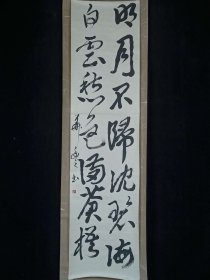 明月不歸沈碧海
白雲愁色滿蒼梧